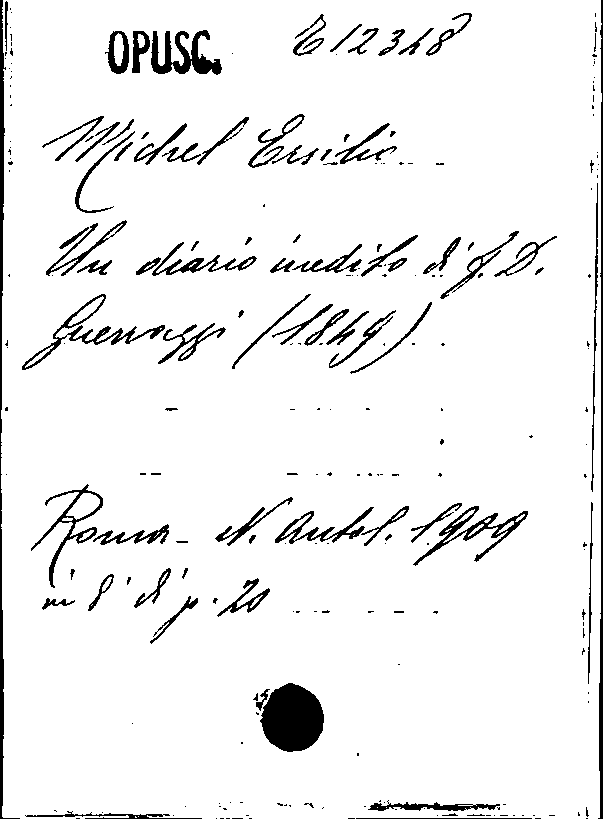 OPUSC. E 12348
Michel Ersilio
Un diario inedito di F. D.
Guerrazzi (1849)
Roma - N. Antol. 1909
in 8° di p. 20